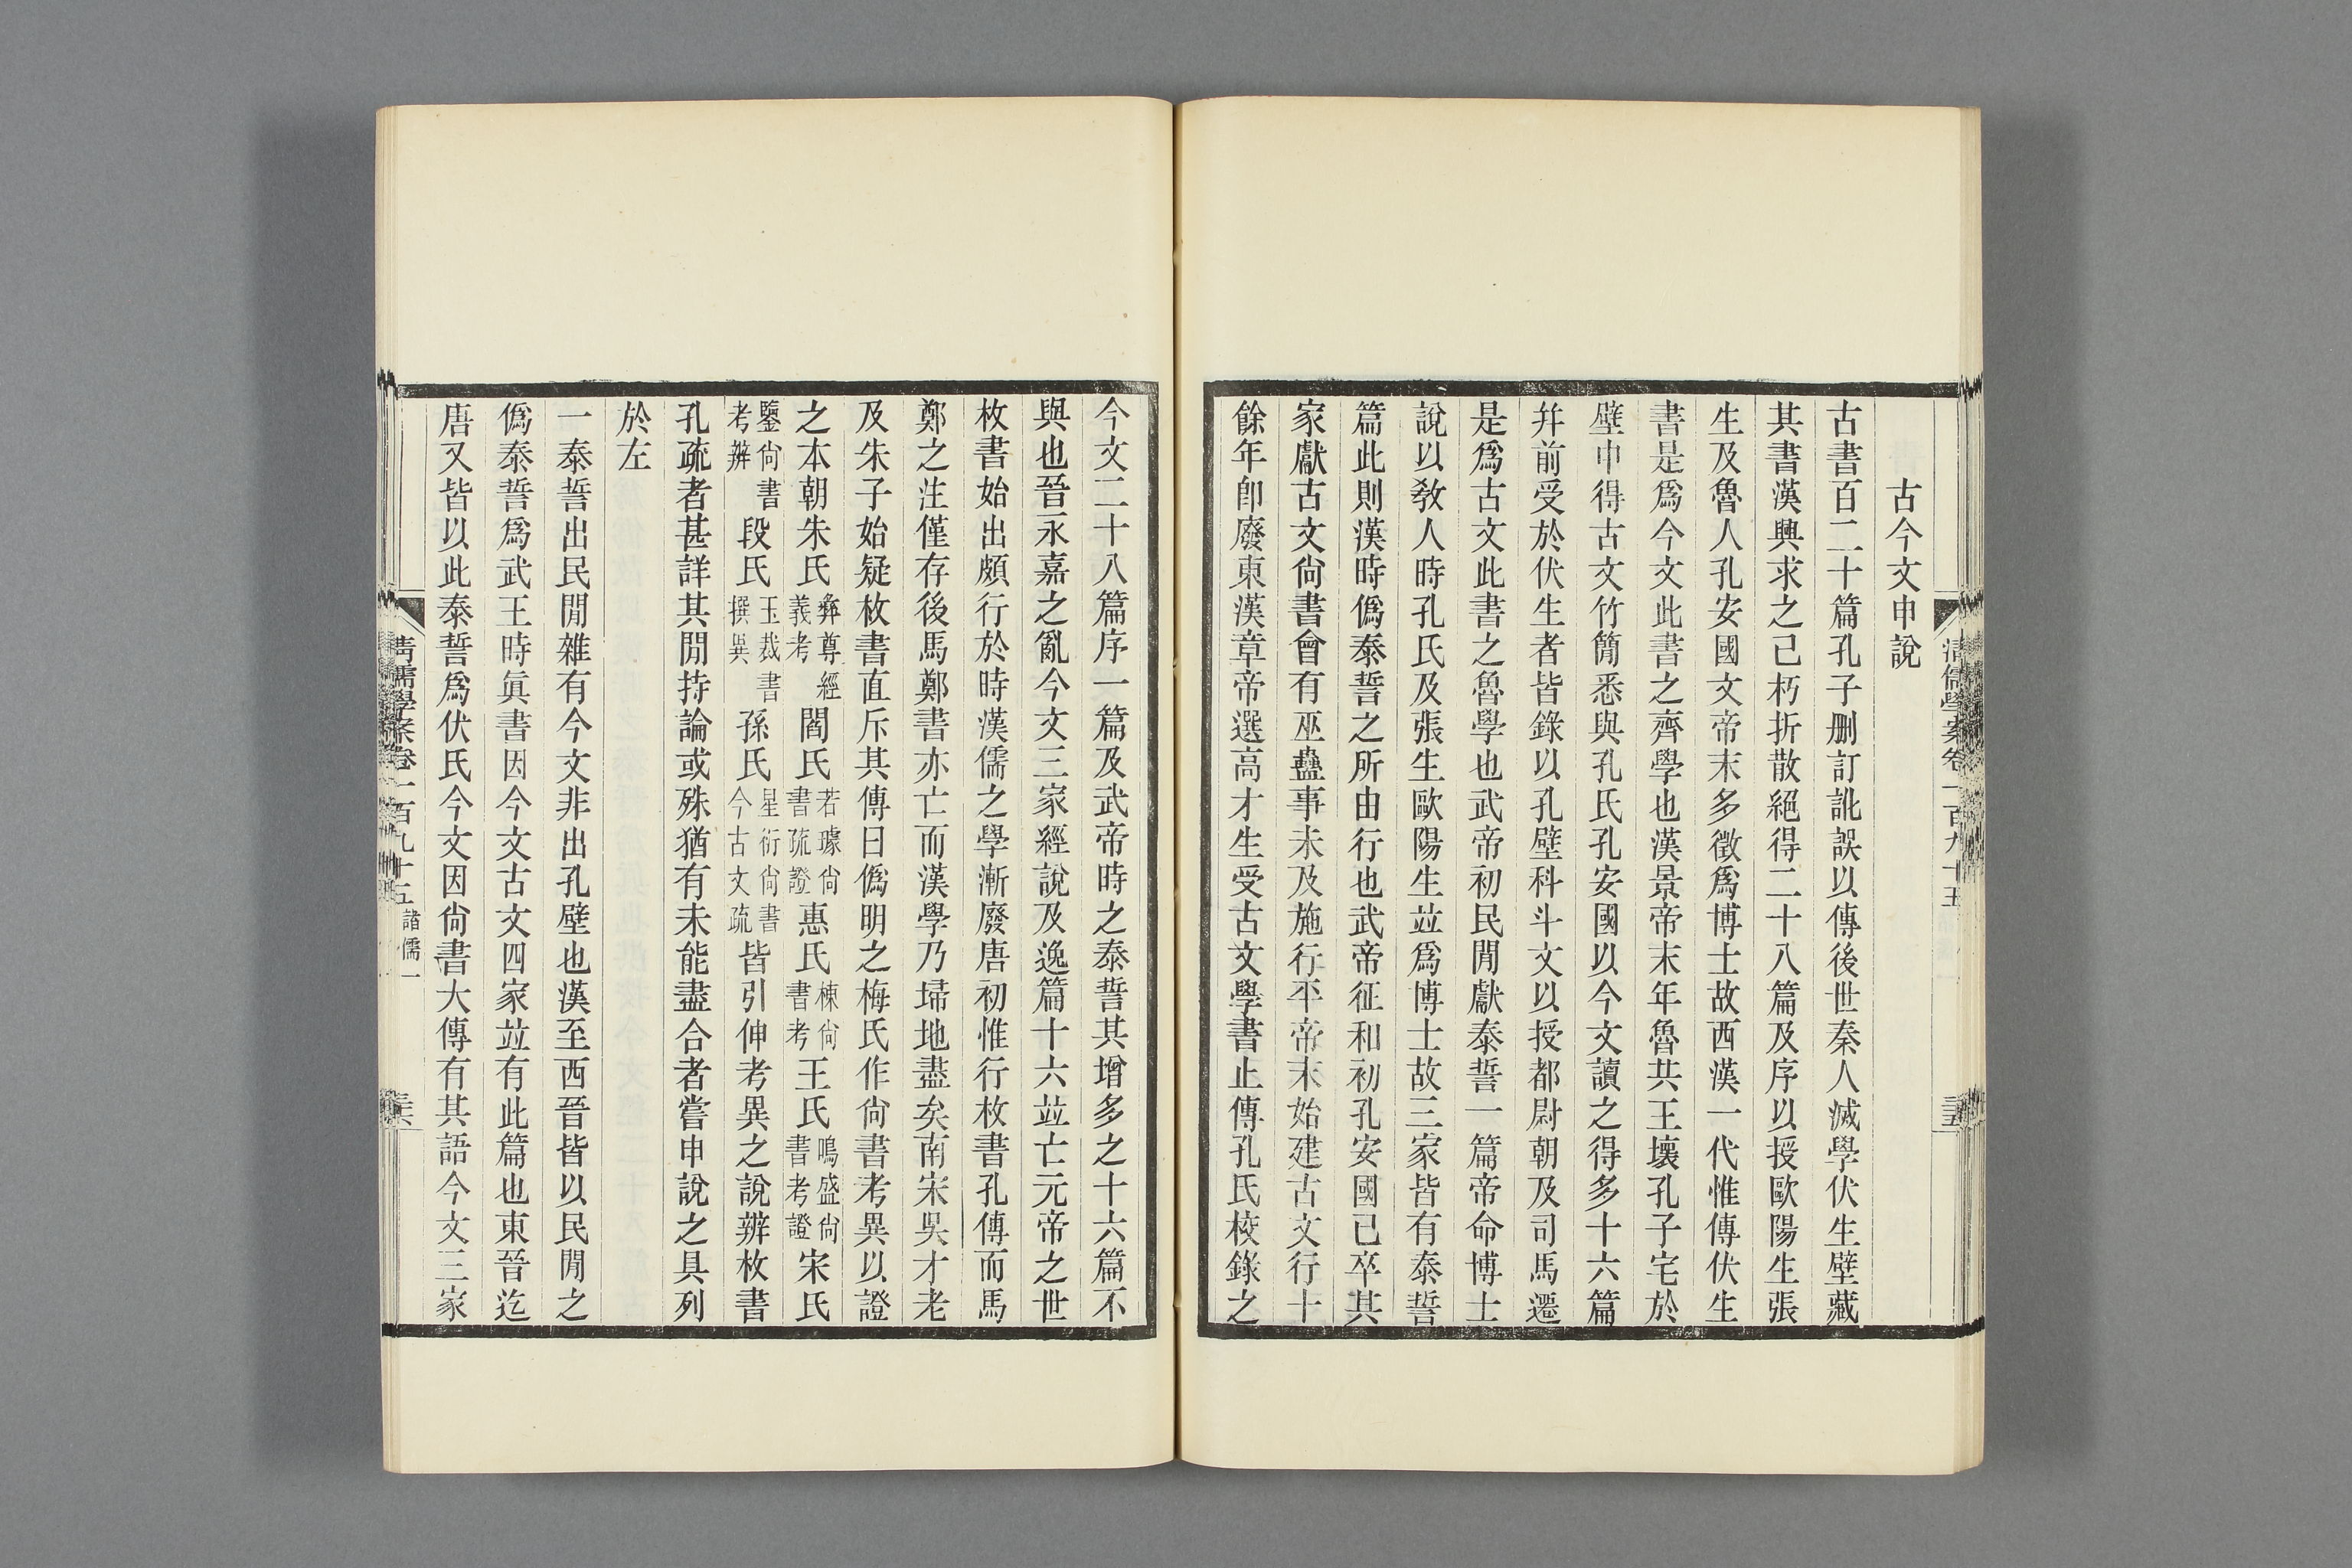 清儒學案卷一百九十五
古今文申說
古書百二十篇孔子刪訂訛誤以傳後世秦人滅學伏生壁藏
其書漢興求之已朽折散絕得二十八篇及序以授歐陽生張
生及魯人孔安國文帝末多徵爲博士故西漢一代惟傳伏生
書是爲今文此書之齊學也漢景帝末年魯共王壞孔子宅於
壁中得古文竹簡悉與孔氏孔安國以今文讀之得多十六篇
幷前受於伏生者皆錄以孔壁科斗文以授都尉朝及司馬遷
是爲古文此書之魯學也武帝初民閒獻泰誓一篇帝命博士
說以敎人時孔氏及張生歐陽生竝爲博士故三家皆有泰誓
篇此則漢時僞泰誓之所由行也武帝征和初孔安國已卒其
家獻古文尙書會有巫蠱事未及施行平帝末始建古文行十
餘年卽廢東漢章帝選高才生受古文學書止傳孔氏校錄之
今文二十八篇序一篇及武帝時之泰誓其增多之十六篇不
與也晉永嘉之亂今文三家經說及逸篇十六竝亡元帝之世
枚書始出頗行於時漢儒之學漸廢唐初惟行枚書孔傳而馬
鄭之注僅存後馬鄭書亦亡而漢學乃埽地盡矣南宋吳才老
及朱子始疑枚書直斥其傳曰僞明之梅氏作尙書考異以證
之本朝朱氏彝尊經義考閻氏若璩尙書疏證惠氏棟尙書考王氏鳴盛尙書考證宋氏
鑒尙書考辨段氏玉裁書撰異孫氏星衍尙書今古文疏皆引伸考異之說辨枚書
孔疏者甚詳其閒持論或殊猶有未能盡合者嘗申說之具列
於左
一泰誓出民閒雜有今文非出孔壁也漢至西晉皆以民閒之
僞泰誓爲武王時眞書因今文古文四家竝有此篇也東晉迄
唐又皆以此泰誓爲伏氏今文因尙書大傳有其語今文三家
清儒學案卷一百九十五 諸儒一